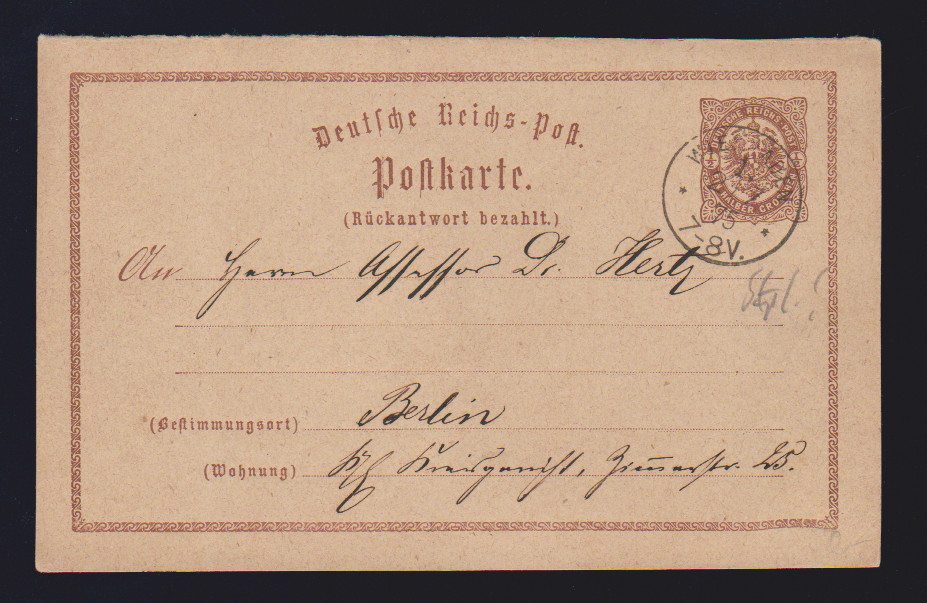 Deutsche Reichs-Post.
Postkarte.
(Rückantwort bezahlt.)
DEUTSCHE REICHS-POST
HALBER GROSCHEN
7-8V.
An Herrn Assessor Dr. Hertz
(Bestimmungsort) Berlin
(Wohnung) Kreisgericht, Zimmerstr. 25.